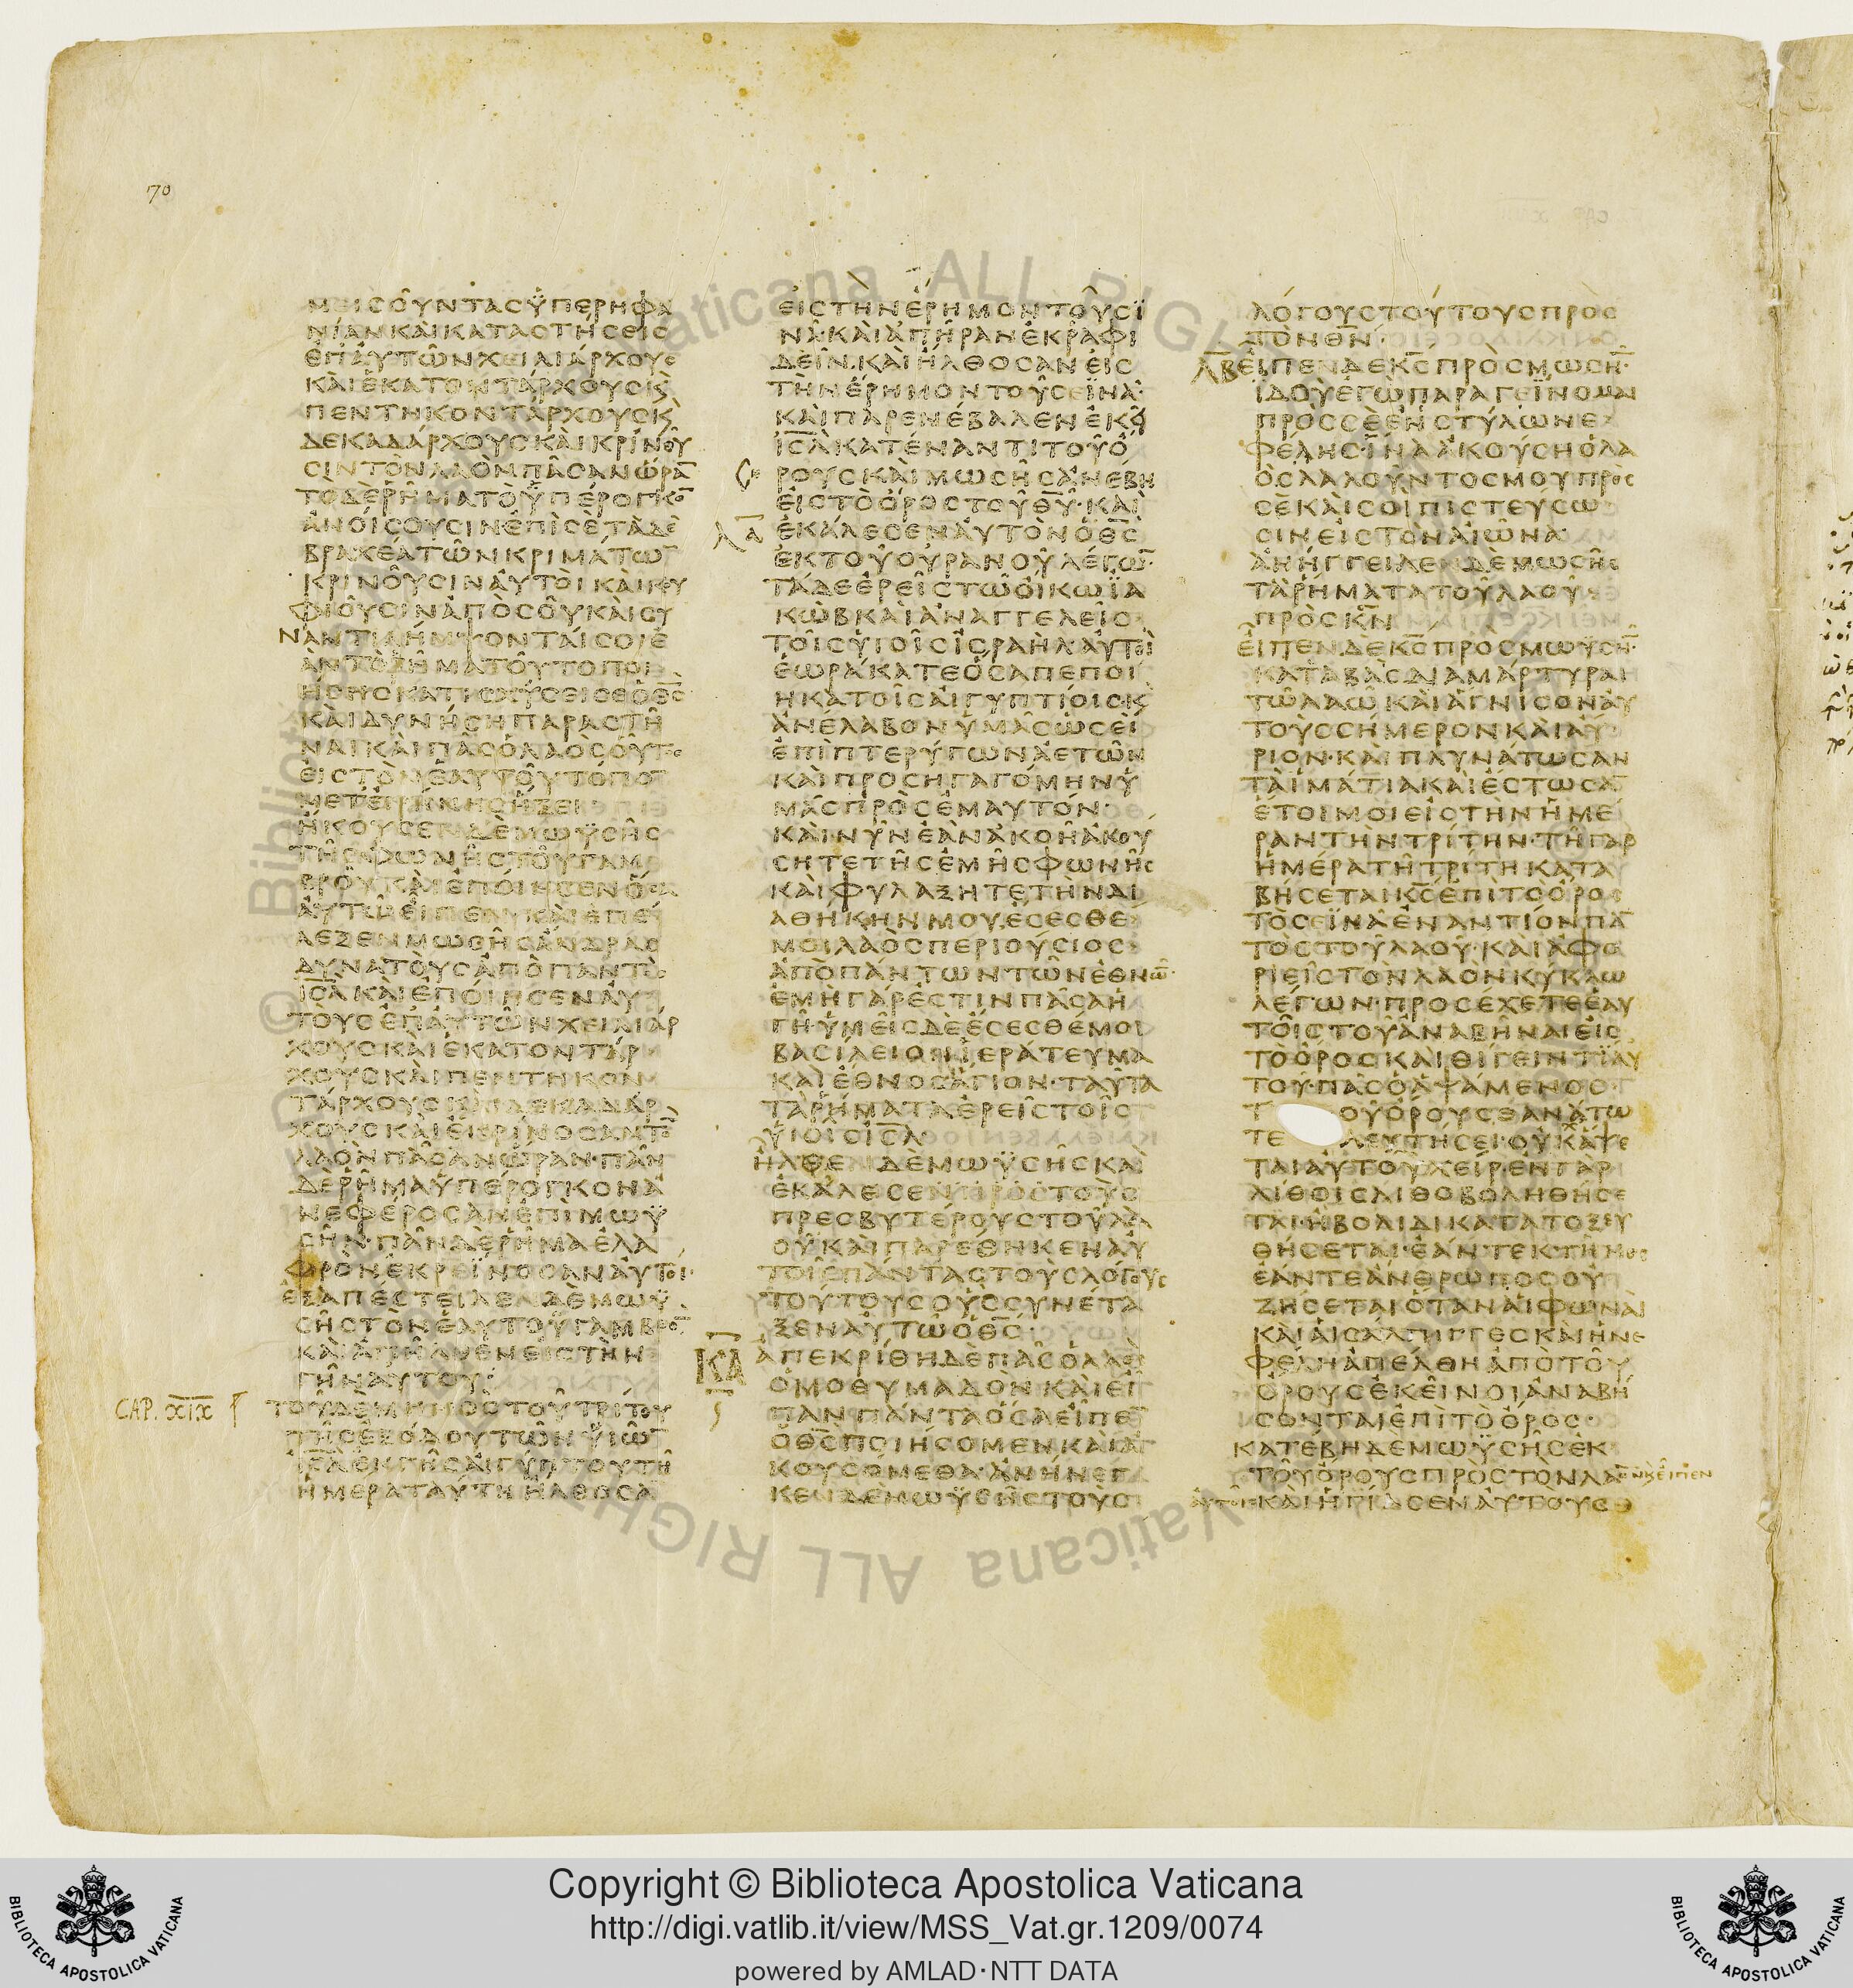 70
ΜΕΙϹΟΥΝΤΑϹΫΠΕΡΗΦΑ
ΝΙΑΝΚΑΙΚΑΤΑϹΤΗϹΕΙϹ
ΕΠΑΥΤΩΝΧΕΙΛΙΑΡΧΟΥϹ
ΚΑΙΕΚΑΤΟΝΤΑΡΧΟΥϹΚ
ΠΕΝΤΗΚΟΝΤΑΡΧΟΥϹΚ
ΔΕΚΑΔΑΡΧΟΥϹΚΑΙΚΡΙΝΟΥ
ϹΙΝΤΟΝΛΑΟΝΠΑϹΑΝΩΡΑ̅
ΤΟΔΕΡΗΜΑΤΟΫΠΕΡΟΓΚΟ̅
ΑΝΟΙϹΟΥϹΙΝΕΠΙϹΕΤΑΔΕ
ΒΡΑΧΕΑΤΩΝΚΡΙΜΑΤΩ̅
ΚΡΙΝΟΥϹΙΝΑΥΤΟΙΚΑΙΚΟΥ
ΦΙΟΥϹΙΝΑΠΟϹΟΥΚΑΙϹΥ
ΝΑΝΤΙΛΗΜΨΟΝΤΑΙϹΟΙΕ
ΑΝΤΟΡΗΜΑΤΟΥΤΟΠΟΙ
ΗϹΗϹΚΑΤΙϹΧΥϹΕΙϹΕΟΘ̅Ϲ̅
ΚΑΙΔΥΝΗϹΗΠΑΡΑϹΤΗ
ΝΑΙΚΑΙΠΑϹΟΛΑΟϹΟΥΤΟϹ
ΕΙϹΤΟΝΕΑΥΤΟΥΤΟΠΟ̅
ΜΕΤΕΙΡΗΝΗϹΗΞΕΙ
ΗΚΟΥϹΕΝΔΕΜΩΫϹΗϹ
ΤΗϹΦΩΝΗϹΤΟΥΓΑΜ
ΒΡΟΥΚΑΙΕΠΟΙΗϹΕΝΟϹΑ
ΑΥΤΩΕΙΠΕΝΚΑΙΕΠΕ
ΛΕΞΕΝΜΩϹΗϹΑΝΔΡΑϹ
ΔΥΝΑΤΟΥϹΑΠΟΠΑΝΤΟϹ
Ι̅Ϲ̅Λ̅ΚΑΙΕΠΟΙΗϹΕΝΑΥ
ΤΟΥϹΕΠΑΥΤΩΝΧΕΙΛΙΑΡ
ΧΟΥϹΚΑΙΕΚΑΤΟΝΤΑΡ
ΧΟΥϹΚΑΙΠΕΝΤΗΚΟΝ
ΤΑΡΧΟΥϹΚΑΙΔΕΚΑΔΑΡ
ΧΟΥϹΚΑΙΕΚΡΙΝΟϹΑΝΤΟ̅
ΛΑΟΝΠΑϹΑΝΩΡΑΝ·ΠΑΝ
ΔΕΡΗΜΑΫΠΕΡΟΓΚΟΝΑ
ΝΕΦΕΡΟϹΑΝΕΠΙΜΩΫ
ϹΗΝ·ΠΑΝΔΕΡΗΜΑΕΛΑ
ΦΡΟΝΕΚΡΕΙΝΟϹΑΝΑΥΤΟΙ·
ΕΞΑΠΕϹΤΕΙΛΕΝΔΕΜΩΫ
ϹΗϹΤΟΝΕΑΥΤΟΥΓΑΜΒΡΟ̅
ΚΑΙΑΠΗΛΘΕΝΕΙϹΤΗΝ
ΓΗΝΑΥΤΟΥ:
CAP. XIX ¶ ΤΟΥΔΕΜΗΝΟϹΤΟΥΤΡΙΤΟΥ
ΤΗϹΕΞΟΔΟΥΤΩΝΫΙΩ̅
Ι̅Ϲ̅Λ̅ΕΚΓΗϹΑΙΓΥΠΤΟΥΤΗ
ΗΜΕΡΑΤΑΥΤΗΗΛΘΟϹΑ̅
ΕΙϹΤΗΝΕΡΗΜΟΝΤΟΥϹΪ
ΝΑ·ΚΑΙΑΠΗΡΑΝΕΚΡΑΦΙ
ΔΕΙΝ·ΚΑΙΗΛΘΟϹΑΝΕΙϹ
ΤΗΝΕΡΗΜΟΝΤΟΥϹΕΙΝΑ·
ΚΑΙΠΑΡΕΝΕΒΑΛΕΝΕΚΕΙ
Ι̅Ϲ̅Λ̅ΚΑΤΕΝΑΝΤΙΤΟΥΟ
ΡΟΥϹΚΑΙΜΩϹΗϹΑΝΕΒΗ
ΕΙϹΤΟΟΡΟϹΤΟΥΘ̅Υ̅·ΚΑΙ
λ̅α̅ ΕΚΑΛΕϹΕΝΑΥΤΟΝΟΘ̅Ϲ̅
ΕΚΤΟΥΟΥΡΑΝΟΥΛΕΓΩ̅·
ΤΑΔΕΕΡΕΙϹΤΩΟΙΚΩΪΑ
ΚΩΒΚΑΙΑΝΑΓΓΕΛΕΙϹ
ΤΟΙϹΥΙΟΙϹΙϹΡΑΗΛ·ΑΥΤΟΙ
ΕΩΡΑΚΑΤΕΟϹΑΠΕΠΟΙ
ΗΚΑΤΟΙϹΑΙΓΥΠΤΙΟΙϹ·Κ
ΑΝΕΛΑΒΟΝΫΜΑϹΩϹΕΙ
ΕΠΙΠΤΕΡΥΓΩΝΑΕΤΩΝ
ΚΑΙΠΡΟϹΗΓΑΓΟΜΗΝΫ
ΜΑϹΠΡΟϹΕΜΑΥΤΟΝ·
ΚΑΙΝΥΝΕΑΝΑΚΟΗΑΚΟΥ
ϹΗΤΕΤΗϹΕΜΗϹΦΩΝΗϹ
ΚΑΙΦΥΛΑΞΗΤΕΤΗΝΔΙ
ΑΘΗΚΗΝΜΟΥ,ΕϹΕϹΘΕ
ΜΟΙΛΑΟϹΠΕΡΙΟΥϹΙΟϹ
ΑΠΟΠΑΝΤΩΝΤΩΝΕΘΝΩ̅·
ΕΜΗΓΑΡΕϹΤΙΝΠΑϹΑΗ
ΓΗ·ΫΜΕΙϹΔΕΕϹΕϹΘΕΜΟΙ
ΒΑϹΙΛΕΙΟΝΪΕΡΑΤΕΥΜΑ
ΚΑΙΕΘΝΟϹΑΓΙΟΝ·ΤΑΥΤΑ
ΤΑΡΗΜΑΤΑΕΡΕΙϹΤΟΙϹ
ΫΙΟΙϹΙ̅Ϲ̅Λ̅
ΗΛΘΕΝΔΕΜΩΫϹΗϹΚΑΙ
ΕΚΑΛΕϹΕΝΤΟΥϹ
ΠΡΕϹΒΥΤΕΡΟΥϹΤΟΥΛΑ
ΟΥΚΑΙΠΑΡΕΘΗΚΕΝΑΥ
ΤΟΙϹΠΑΝΤΑϹΤΟΥϹΛΟΓΟΥϹ
ΤΟΥΤΟΥϹΟΥϹϹΥΝΕΤΑ
ΞΕΝΑΥΤΩΟΘ̅Ϲ̅·
ΚΑ ΑΠΕΚΡΙΘΗΔΕΠΑϹΟΛΑΟϹ
ΟΜΟΘΥΜΑΔΟΝΚΑΙΕΙ
ΠΑΝΠΑΝΤΑΟϹΑΕΙΠΕ̅
ΟΘ̅Ϲ̅ΠΟΙΗϹΟΜΕΝΚΑΙΑ
ΚΟΥϹΟΜΕΘΑ·ΑΝΗΝΕΓ
ΚΕΝΔΕΜΩΫϹΗϹΤΟΥϹ
ΛΟΓΟΥϹΤΟΥΤΟΥϹΠΡΟϹ
ΤΟΝΘ̅Ν̅·
λ̅β̅ ΕΙΠΕΝΔΕΚ̅Ϲ̅ΠΡΟϹΜΩϹΗ̅·
ΙΔΟΥΕΓΩΠΑΡΑΓΕΙΝΟΜΑΙ
ΠΡΟϹϹΕΕΝϹΤΥΛΩΝΕ
ΦΕΛΗϹΪΝΑΑΚΟΥϹΗΟΛΑ
ΟϹΛΑΛΟΥΝΤΟϹΜΟΥΠΡΟϹ
ϹΕΚΑΙϹΟΙΠΙϹΤΕΥϹΩ
ϹΙΝΕΙϹΤΟΝΑΙΩΝΑ
ΑΝΗΓΓΕΙΛΕΝΔΕΜΩϹΗϹ
ΤΑΡΗΜΑΤΑΤΟΥΛΑΟΥ
ΠΡΟϹΚ̅Ν̅
ΕΙΠΕΝΔΕΚ̅Ϲ̅ΠΡΟϹΜΩΥϹΗ̅·
ΚΑΤΑΒΑϹΔΙΑΜΑΡΤΥΡΑΙ
ΤΩΛΑΩΚΑΙΑΓΝΙϹΟΝΑΥ
ΤΟΥϹϹΗΜΕΡΟΝΚΑΙΑΥ
ΡΙΟΝ·ΚΑΙΠΛΥΝΑΤΩϹΑΝ
ΤΑΙΜΑΤΙΑΚΑΙΕϹΤΩϹΑ̅
ΕΤΟΙΜΟΙΕΙϹΤΗΝΗΜΕ
ΡΑΝΤΗΝΤΡΙΤΗΝ·ΤΗΓΑΡ
ΗΜΕΡΑΤΗΤΡΙΤΗΚΑΤΑ
ΒΗϹΕΤΑΙΚ̅Ϲ̅ΕΠΙΤΟΟΡΟϹ
ΤΟϹΕΙΝΑΕΝΑΝΤΙΟΝΠΑ̅
ΤΟϹΤΟΥΛΑΟΥ·ΚΑΙΑΦΟ
ΡΙΕΙϹΤΟΝΛΑΟΝΚΥΚΛΩ
ΛΕΓΩΝ·ΠΡΟϹΕΧΕΤΕΕΑΥ
ΤΟΙϹΤΟΥΑΝΑΒΗΝΑΙΕΙϹ
ΤΟΟΡΟϹΚΑΙΘΙΓΕΙΝΤΙΑΥ
ΤΟΥ·ΠΑϹΟΑΨΑΜΕΝΟϹ
Τ ΟΥΟΡΟΥϹΘΑΝΑΤΩ
ΤΕ ΛΕΥΤΗϹΕΙ·ΟΥΧΑΨΕ
ΤΑΙΑΥΤΟΥΧΕΙΡ·ΕΝΓΑΡ
ΛΙΘΟΙϹΛΙΘΟΒΟΛΗΘΗϹΕ
ΤΑΙ·ΗΒΟΛΙΔΙΚΑΤΑΤΟΞΕΥ
ΘΗϹΕΤΑΙ·ΕΑΝΤΕΚΤΗΝΟϹ
ΕΑΝΤΕΑΝΘΡΩΠΟϹΟΥ
ΖΗϹΕΤΑΙΟΤΑΝΑΙΦΩΝΑΙ
ΚΑΙΑΙϹΑΛΠΙΓΓΕϹΚΑΙΗΝΕ
ΦΕΛΗΑΠΕΛΘΗΑΠΟΤΟΥ
ΟΡΟΥϹΕΚΕΙΝΟΙΑΝΑΒΗ
ϹΟΝΤΑΙΕΠΙΤΟΟΡΟϹ·
ΚΑΤΕΒΗΔΕΜΩΫϹΗϹΕΚ
ΤΟΥΟΡΟΥϹΠΡΟϹΤΟΝΛΑΟΝ
ΚΑΙΗΓΙΑϹΕΝΑΥΤΟΥϹ
Copyright © Biblioteca Apostolica Vaticana
http://digi.vatlib.it/view/MSS_Vat.gr.1209/0074
powered by AMLAD·NTT DATA
BIBLIOTECA APOSTOLICA VATICANA
BIBLIOTECA APOSTOLICA VATICANA